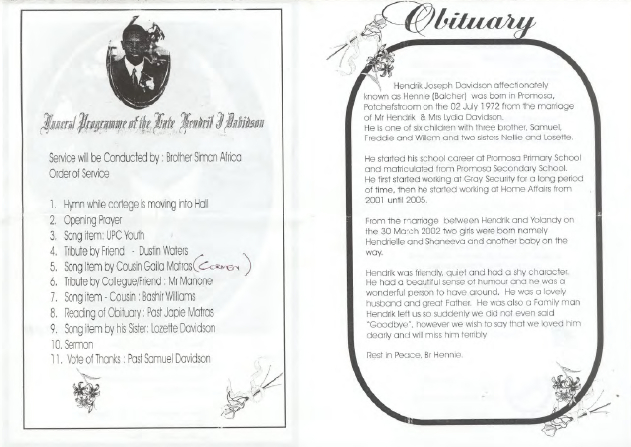 Funeral Programme of the Late Hendrik J Davidson
Service will be Conducted by : Brother Simon Africa
Order of Service
1. Hymn while cortege is moving into Hall
2. Opening Prayer
3. Song item: UPC Youth
4. Tribute by Friend - Dustin Waters
5. Song Item by Cousin Gaila Matras
6. Tribute by Collegue/Friend : Mr Marione
7. Song item - Cousin : Bashir Williams
8. Reading of Obituary : Past Japie Matras
9. Song item by his Sister: Lozette Davidson
10. Sermon
11. Vote of Thanks : Past Samuel Davidson
Obituary
Hendrik Joseph Davidson affectionately
known as Hennie (Balcher) was born in Promosa,
Potchefstroom on the 02 July 1972 from the marriage
of Mr Hendrik & Mrs Lydia Davidson.
He is one of six children with three brother, Samuel,
Freddie and Willem and two sisters Nellie and Losette.
He started his school career at Promosa Primary School
and matriculated from Promosa Secondary School.
He first started working at Gray Security for a long period
of time, then he started working at Home Affairs from
2001 until 2005.
From the marriage between Hendrik and Yolandy on
the 30 March 2002 two girls were born namely
Hendrielle and Shaneeva and another baby on the
way.
Hendrik was friendly, quiet and had a shy character.
He had a beautiful sense of humour and he was a
wonderful person to have around. He was a lovely
husband and great Father. He was also a Family man
Hendrik left us so suddenly we did not even said
"Goodbye", however we wish to say that we loved him
dearly and will miss him terribly
Rest in Peace, Br Hennie.